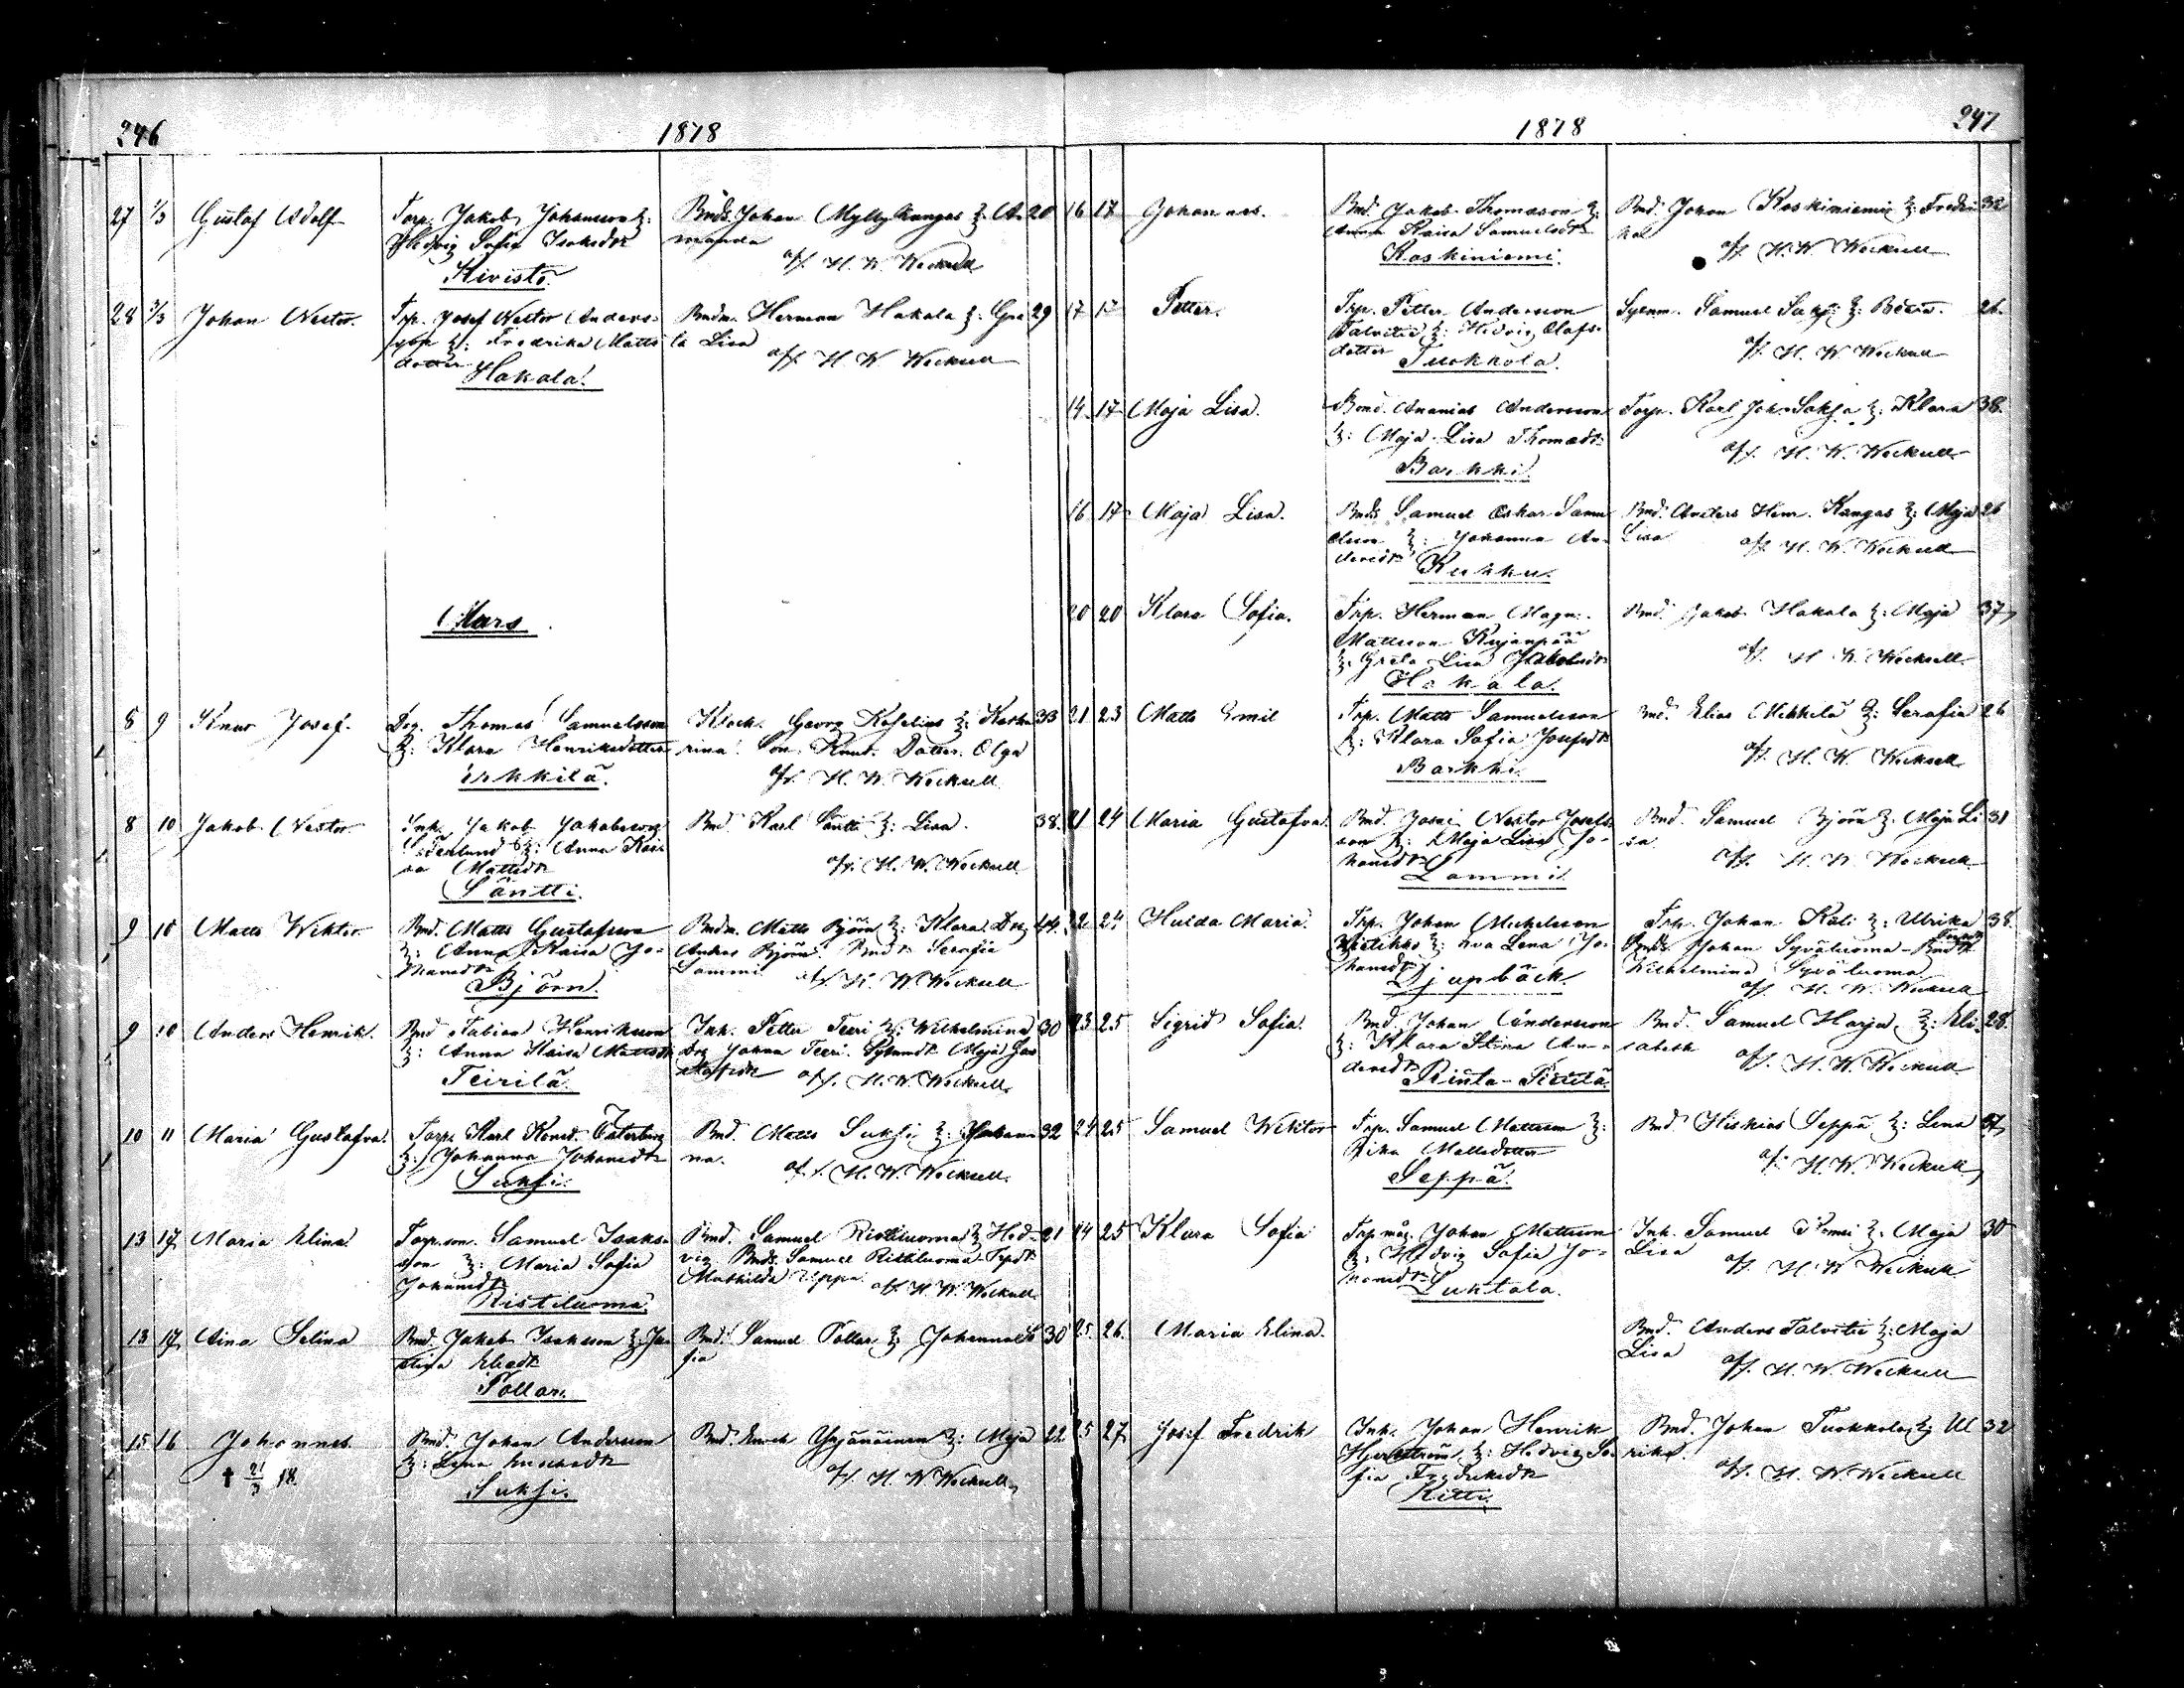 246
1878
27 1/3 Gustaf Adolf
Torp. Jakob Johansson &:
Hedvig Sofia Isaksdr
Kivistö
Bnds. Johan Myllykangas &: A- 20
manda
aff. H. W. Wecksell
28 3/3 Johan Nestor.
Trp. Josef Nestor Anders-
son &: Fredrika Matts
dotter
Hakala.
Bndm. Herman Hakala &: Gre 29
ta Lisa
aff. H. W. Wecksell
Mars
8 9 Knut Josef.
Drg. Thomas Samuelsson
&: Klara Henriksdotter
Klock. Georg Roselius &: Katha 33
rina. Son. Knut. Dotter. Olga
aff. H. W. Wecksell
8 10 Jakob Nestor
Inh. Jakob Jakobsson
&: Anna Kai-
sa Mattsdr
Säntti
Bnd. Karl Säntti &: Lisa. 38.
aff. H. W. Wecksell
9 10 Matts Wiktor
Bnd. Matts Gustafsson
&: Anna Kaisa Jo-
hansdr
Björn.
Bndm. Matts Björn &: Klara. Drg 44.
Anders Björn. Bnddr Serafia
Lammi
aff. H. W. Wecksell
9 10 Anders Henrik.
Bnd Fabian Henriksson
&: Anna Kaisa Mattsdr
Teirilä.
Inh. Petter Teeri &: Wilhelmina 30
Drg Johan Teeri. Maja Gus
tafsdr
aff. H. W. Wecksell
10 11 Maria Gustafva.
Torp. Karl Konrd.
&: Johanna Johansdr
Suksi.
Bnd. Matts Suksi &: Johan- 32
na.
aff. H. W. Wecksell
13 17 Maria Elina.
Torp.son. Samuel Isaks-
son &: Maria Sofia
Johansdr
Ristiluoma.
Bnd. Samuel Ristiluoma &: Hed- 21
vig Bnds. Samuel Ristiluoma Trpdr
Mathilda
aff. H. W. Wecksell
13 17 Aina Selina
Bnd. Jakob Isaksson &: Ju-
stina Eliedr
Pollari.
Bnd. Samuel Pollari &: Johanna So 30
fia
15 16 Johannes.
† 21/3 18.
Bnd. Johan Andersson
&: Lena Enochsdr
Suksi.
Bnd. Enoch Yrjänäinen &: Maja 22
aff. H. W. Wecksell
1878
247
16 17 Johannes.
Bnd. Jakob Thomasson &:
Anna Kaisa Samuelsdr
Koskiniemi.
Bnd. Johan Koskiniemi &: Fredri 32
ka
aff. H. W. Wecksell
17 17 Petter.
Trp. Petter Andersson
Talvitie &: Hedvig Olafs-
dotter
Tuokkola.
Sytnm. Samuel Saksa &: Beata. 26.
aff. H. W. Wecksell
14 17 Maja Lisa.
Bond. Ananias Andersson
&: Maja Lisa Thomasdr
Barkki.
Torp. Karl Joh. Saksa &: Klara 38.
aff. H. W. Wecksell
16 17 Maja Lisa.
Bnds Samuel Oskar Samu
elsson &: Johanna An-
dersdr
Kukku.
Bnd. Anders Henr. Kangas &: Maja 26
Lisa
aff. H. W. Wecksell
20 20 Klara Sofia.
Trp. Herman Magn.
Mattsson Kujanpää
&: Greta Lisa Jakobsdr
Hakala.
Bnd. Jakob Hakala &: Maja 37
aff. H. W. Wecksell
21 23 Matts Emil
Trp. Matts Samuelsson
&: Klara Sofia Josefsdr
Barkki.
Bnd. Elias Mikkilä &: Serafia 26
aff. H. W. Wecksell
21 24 Maria Gustafva.
Bnd. Josef Nestor Josefs-
son &: Maja Lisa Jo-
hansdr
Lammi.
Bnd. Samuel Björn &: Maja Li 31
sa
aff. H. W. Wecksell
22 24 Hulda Maria.
Trp. Johan Michelsson
&: Eva Lena Jo-
hansdr
Djupbäck.
Trp. Johan Kali &: Ulrika 38.
Bnds Johan Syväluoma
Wilhelmina Syväluoma
aff. H. W. Wecksell
23 25 Sigrid Sofia.
Bnd. Johan Andersson
&: Klara Stina An-
dersdr
Rinta-
Bnd. Samuel Harju &: Eli- 28.
sabeth
aff. H. W. Wecksell
24 25 Samuel Wiktor
Trp. Samuel Mattsson &:
Rika Mattsdotter
Seppä.
Bnd. Hiskias Seppä &: Lena 37
aff. H. W. Wecksell
24 25 Klara Sofia
Trp.måg. Johan Mattsson
&: Hedvig Sofia Jo-
hansdr
Luhtala.
Inh. Samuel &: Maja 30
Lisa
aff. H. W. Wecksell
25 26. Maria Elina.
Bnd. Anders Talvitie &: Maja
Lisa
aff. H. W. Wecksell
25 27 Josef Fredrik
Inh. Johan Henrik
&: Hedvig So-
fia Fredriksdr
Kitti.
Bnd. Johan Tuokkola &: Ul 32
rika.
aff. H. W. Wecksell